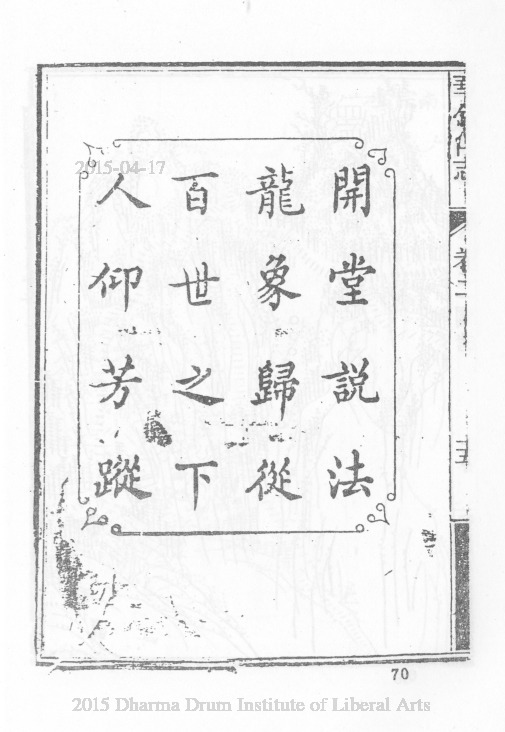 開堂説法
龍象歸從
百世之下
人仰芳蹤
2015-04-17
70
2015 Dharma Drum Institute of Liberal Arts